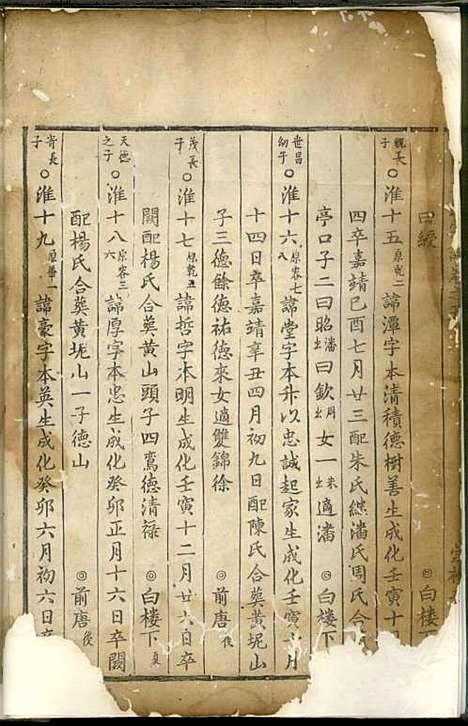 曰綬 ◎白樓下
親長子 ○淮十五 原乾二 諱潭字本清積德樹善生成化壬寅十
四卒嘉靖己酉七月廿三配朱氏繼潘氏周氏合
亭口子二曰昭 潘出 曰欽 周出 女一 朱出 適潘 ◎白樓下
世昌幼子 ○淮十六 原容七八 諱堂字本升以忠誠起家生成化壬寅 月
十四日卒嘉靖辛丑四月初九日配陳氏合葬黄坭山
子三德餘德祐德來女適雙錦徐 ◎前唐 後
茂長子 ○淮十七 原乾五 諱哲字本明生成化壬寅十二月廿六日卒
闕配楊氏合葬黄山頭子四鸞德清禄 ◎白樓下 貞
天德之子 ○淮十八 原容三六 諱厚字本忠生成化癸卯正月十六日卒闕
配楊氏合葬黄坭山一子德山 ◎前唐 後
寄長子 ○淮十九 諱豪字本英生成化癸卯六月初六日卒